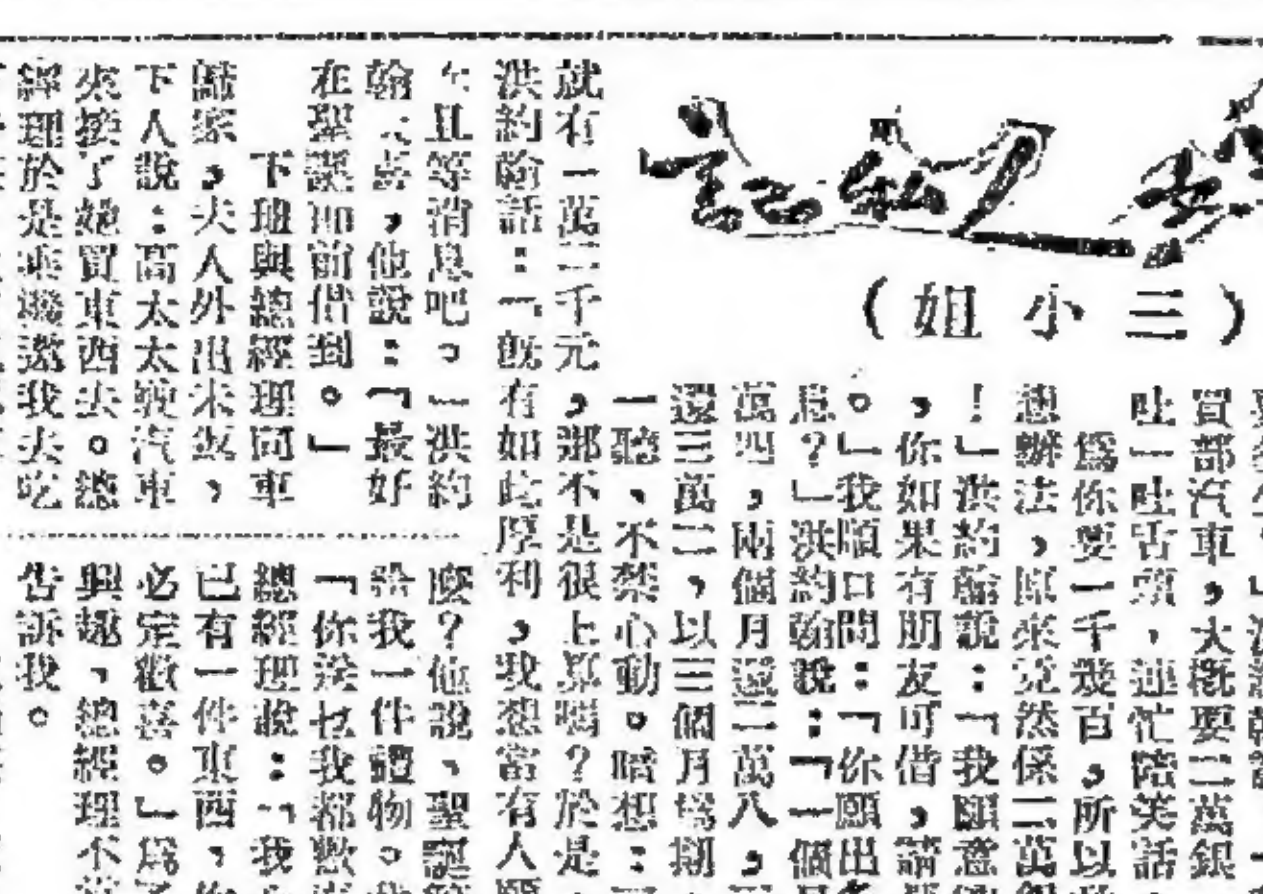 （三小姐）
買部汽車，大概要二萬銀
吐一吐舌頭，連忙陪笑話
為你要一千幾百，所以
想辦法，原來竟然係二萬銀
！」洪約翰說：「我願意
，你如果有朋友可借，請
。」我順口問：「你願出多
息？」洪約翰說：「一個月
萬四，兩個月還二萬八，
還三萬二，以三個月為期
一聽、不禁心動。暗想：
就有一萬二千元，那不是很上算嗎？於是
洪約翰話：「既有如此厚利，我想當有人願
且等消息吧。」洪約
翰大喜，他說：「最好
在聖誕節前借到。」
下班與總經理同車
歸家，夫人外出未返，
下人說：高太太駛汽車
來接了她買東西去。總
經理於是乘機邀我去吃
麼？他說、聖誕節
給我一件禮物。我
「你送乜我都歡
總經理說：「我
已有一件東西，你
必定歡喜。」為了
興趣、總經理不
告訴我。